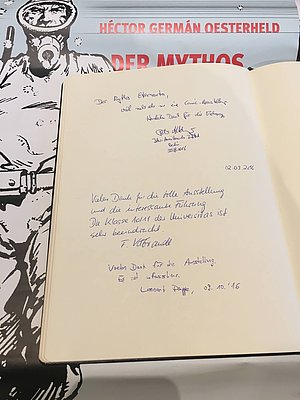 HÉCTOR GERMÁN OESTERHELD
DER MYTHOS
Der Mythos Eternauta,
viel mehr als nur eine Comic-Ausstellung
Herzlichen Dank für die Führung
Berlin
02.03.2016
Vielen Dank für die tolle Ausstellung
und die interessante Führung
Die Klasse 10/11 des Universitas ist
sehr beeindruckt
Vielen Dank für die Ausstellung.
Es ist
03.10.'16